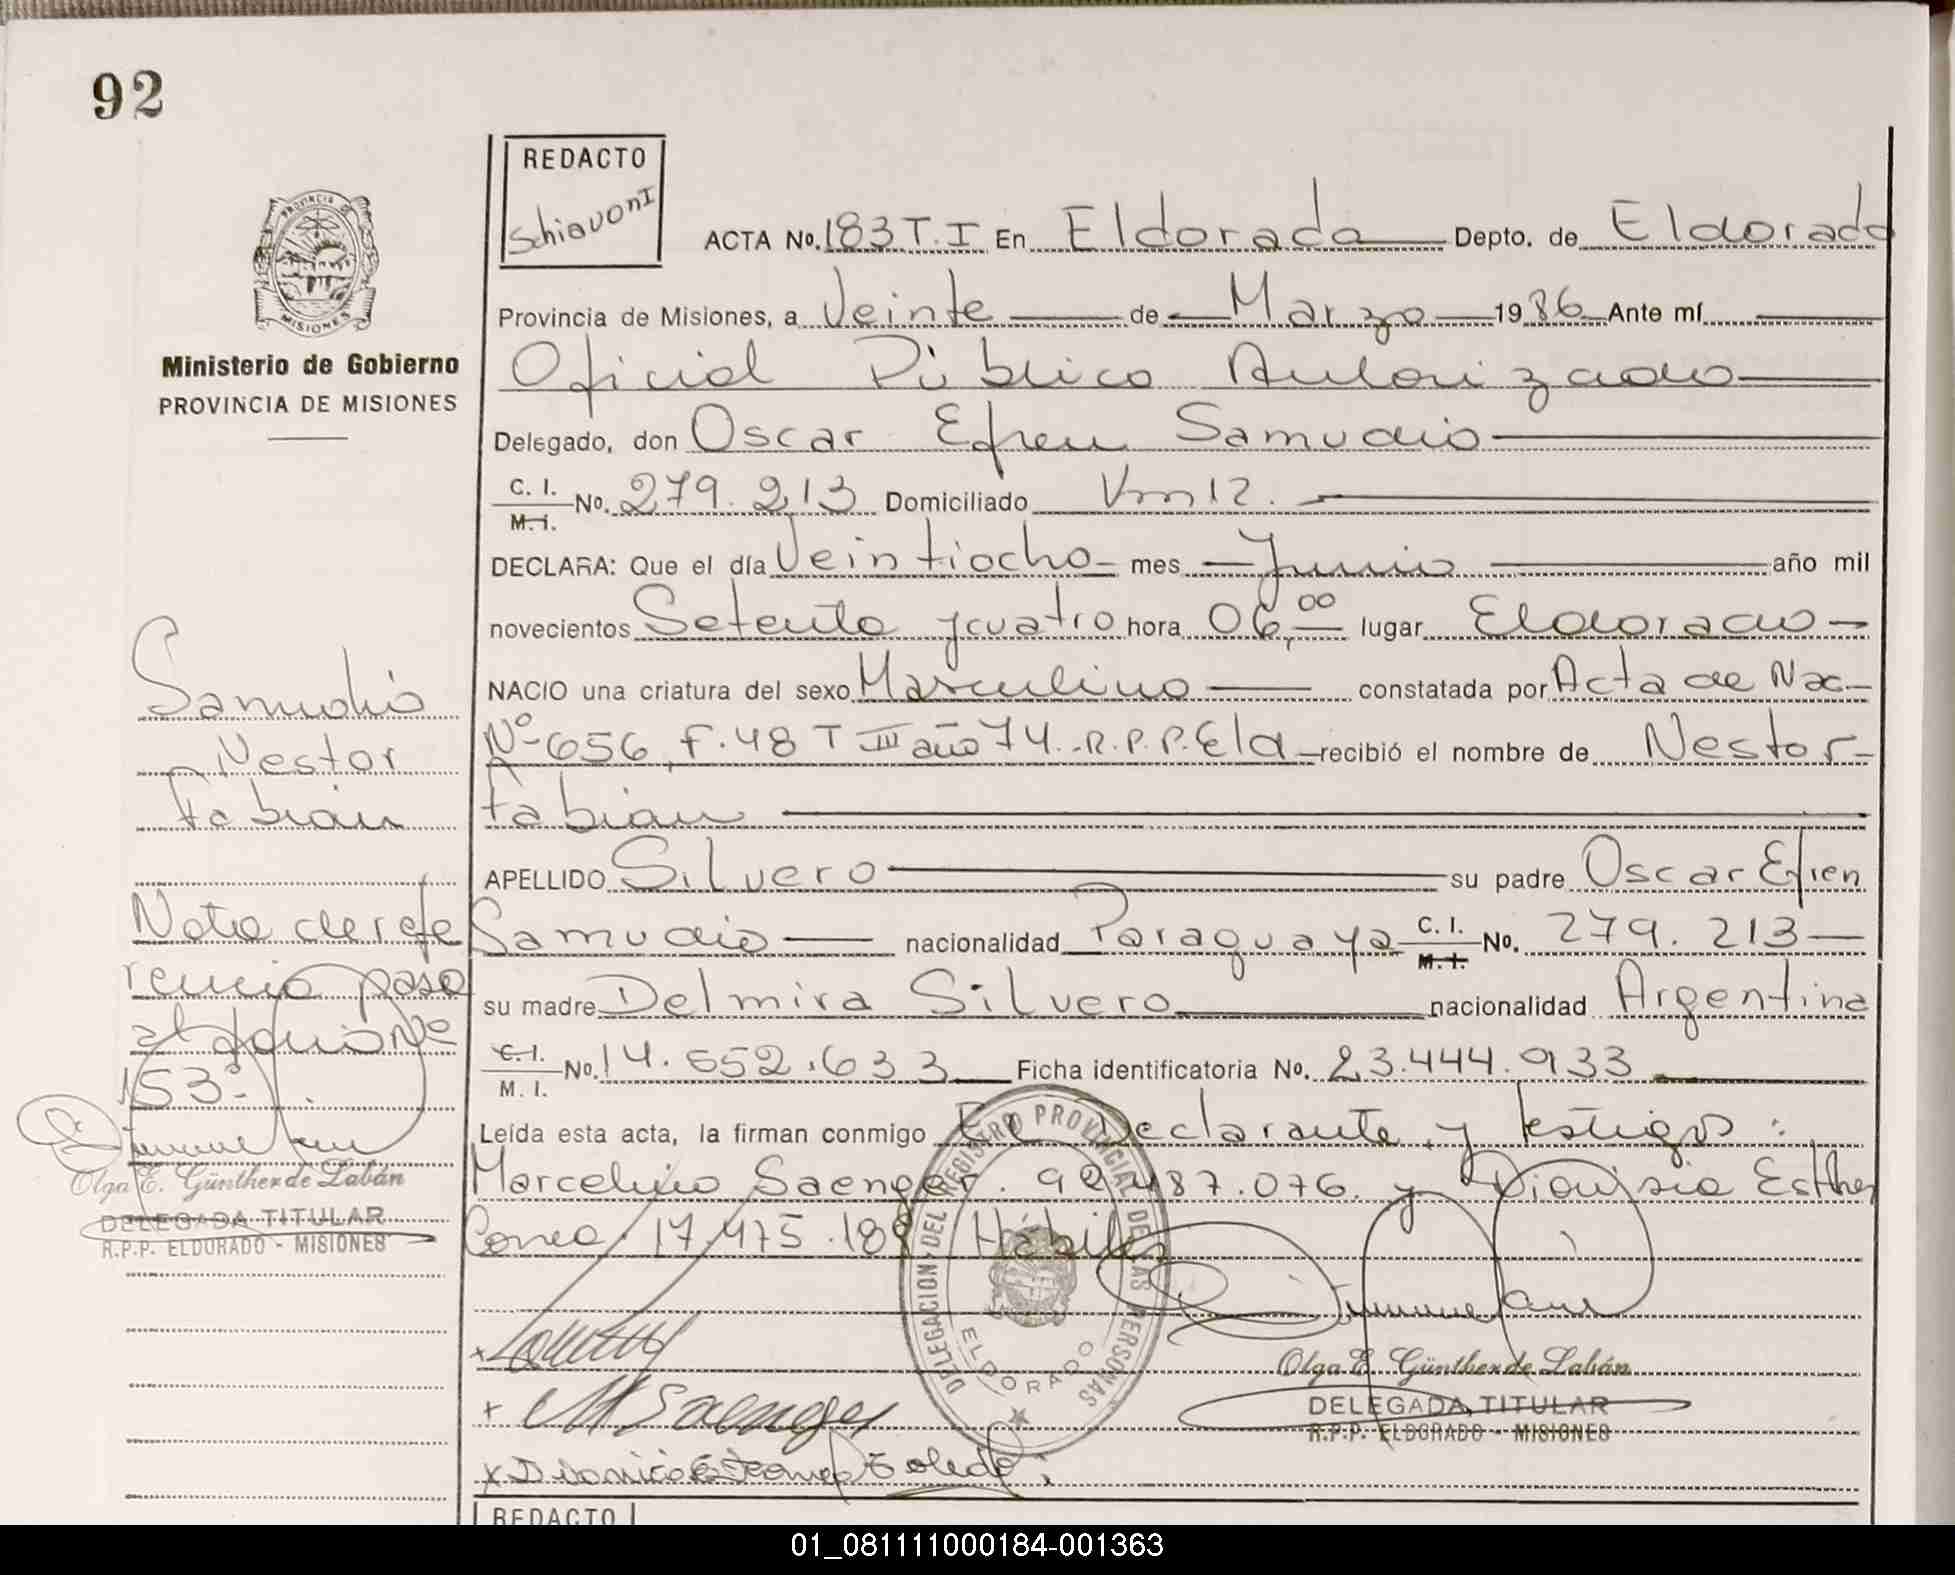 92
REDACTO
Schiavoni
PROVINCIA
MISIONES
Ministerio de Gobierno
PROVINCIA DE MISIONES
ACTA No. 183 T. I En Eldorado Depto. de Eldorado
Provincia de Misiones, a Veinte de Marzo 1986 Ante mí
Oficial Público Autorizado
Delegado, don Oscar Efren Samudio
C. I. M. I. No. 279.213 Domiciliado Km 12.
DECLARA: Que el día Veintiocho mes Junio año mil
novecientos Setenta y cuatro hora 06,00 lugar Eldorado
NACIO una criatura del sexo Masculino constatada por Acta de Nac
Nº 656, F. 48 T III año 74. R.P.P. Eld recibió el nombre de Nestor
Fabian
APELLIDO Silvero su padre Oscar Efren
Samudio nacionalidad Paraguaya C. I. M. I. No. 279.213
su madre Delmira Silvero nacionalidad Argentina
C. I. M. I. No. 14.652.633 Ficha identificatoria No. 23.444.933
Leída esta acta, la firman conmigo El Declarante y testigos:
Marcelino Saenger. 92.487.076. y Dionisia Esther
Correa. 17.475.189 Hábiles
Samudio
Nestor
Fabian
Nota de refe
rencia paso
al folio Nº
153.
Olga E. Günther de Labán
DELEGADA TITULAR
R.P.P. ELDORADO - MISIONES
DELEGACION DEL REGISTRO PROVINCIAL DE LAS PERSONAS
ELDORADO
x
x M Saenger
x
Olga E. Günther de Labán
DELEGADA TITULAR
R.P.P. ELDORADO - MISIONES
REDACTO
01_081111000184-001363